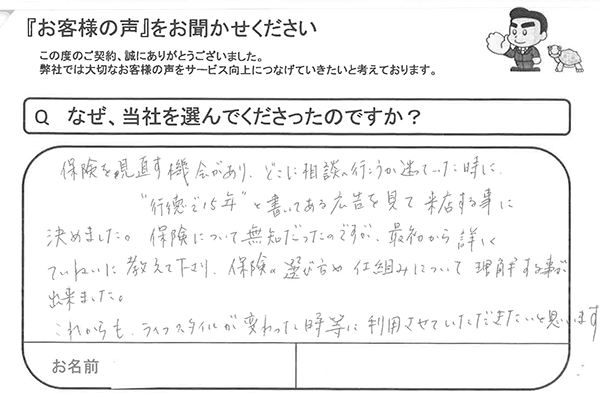 『お客様の声』をお聞かせください
この度のご契約、誠にありがとうございました。
弊社では大切なお客様の声をサービス向上につなげていきたいと考えております。
Q なぜ、当社を選んでくださったのですか？
保険を見直す機会があり、どこに相談へ行こうか迷っていた時に、
"行徳で15年"と書いてある広告を見て来店する事に
決めました。保険について無知だったのですが、最初から詳しく
ていねいに教えて下さり、保険の選び方や仕組みについて理解する事が
出来ました。
これからも、ライフスタイルが変わった時等に利用させていただきたいと思います
お名前